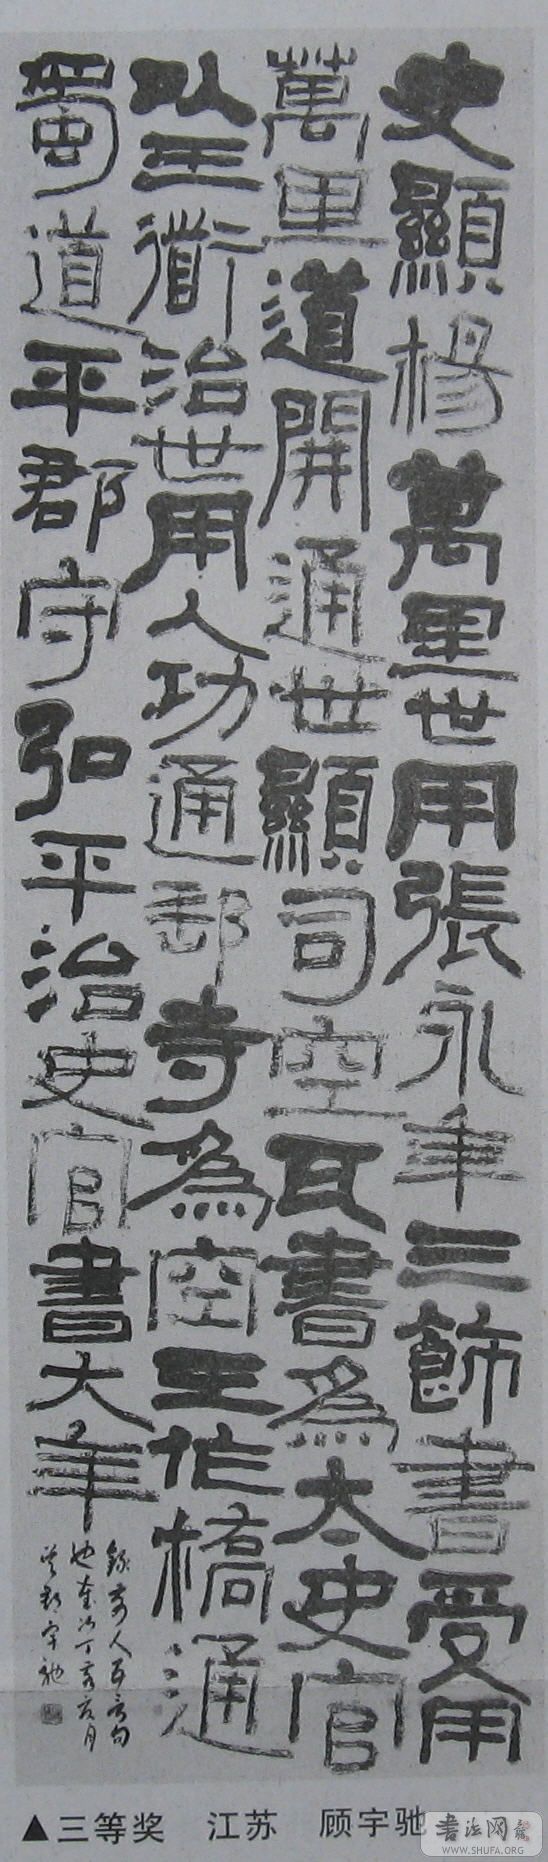 史顯楊萬里世用張永年三飾書受用
萬里道開通世顯司空瓦書為太史官
以王衜治世用人功通郙寺為空王作橋通
蜀道平郡守弘平治史官書大年
錄前人百言句
也奉治丁亥六月
▲三等奖 江苏 顾宇驰
書法网
WWW.SHUFA.ORG